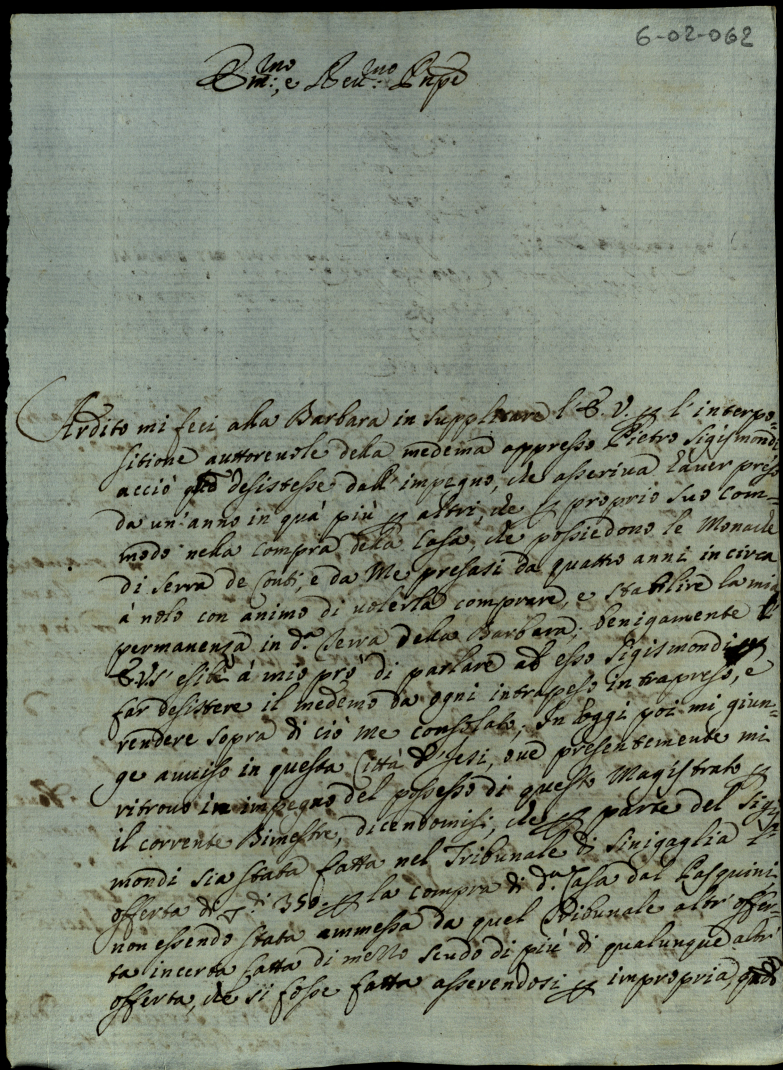 6-02-062
Em:mo, e Reu:mo Pnpe
Ardito mi feci alla Barbara in supplicare l'E. V. per l'interpo=
sitione auttoreuole della medema appresso Pietro Sigismondi
acciò desistesse dall'impegno, che asseriua d'auer preso
da un'anno in quà più per altri, che per proprio suo com=
modo nella compra della Casa, che possiedono le Monache
di Serra de Conti, e da Me presasi da quattro anni in circa
à nolo con animo di uolerla comprare, e stabilire la mia
permanenza in d.a Serra. Della Barbara, benigamente l'
E.V. esibì à mio prò di parlare ad esso Sigismondi per
far desistere il medemo da ogni intrapeso intrapreso, e
rendere sopra di ciò me consolato. In oggi poi mi giun=
ge auuiso in questa Città di Jesi, oue presentemente mi
ritrouo in impegno del possesso di questo Magistrato per
il corrente Bimestre, dicendomisi, che per parte del Sigis
mondi sia stata fatta nel Tribunale di Sinigaglia l'
offerta di 350. per la compra di d.a Casa dal Pasquini
non essendo stata ammessa da quel Tribunale altr'offer=
ta incerta fatta di mezzo scudo di più di qualunque altr'
offerta, che si fosse fatta asserendosi per impropria